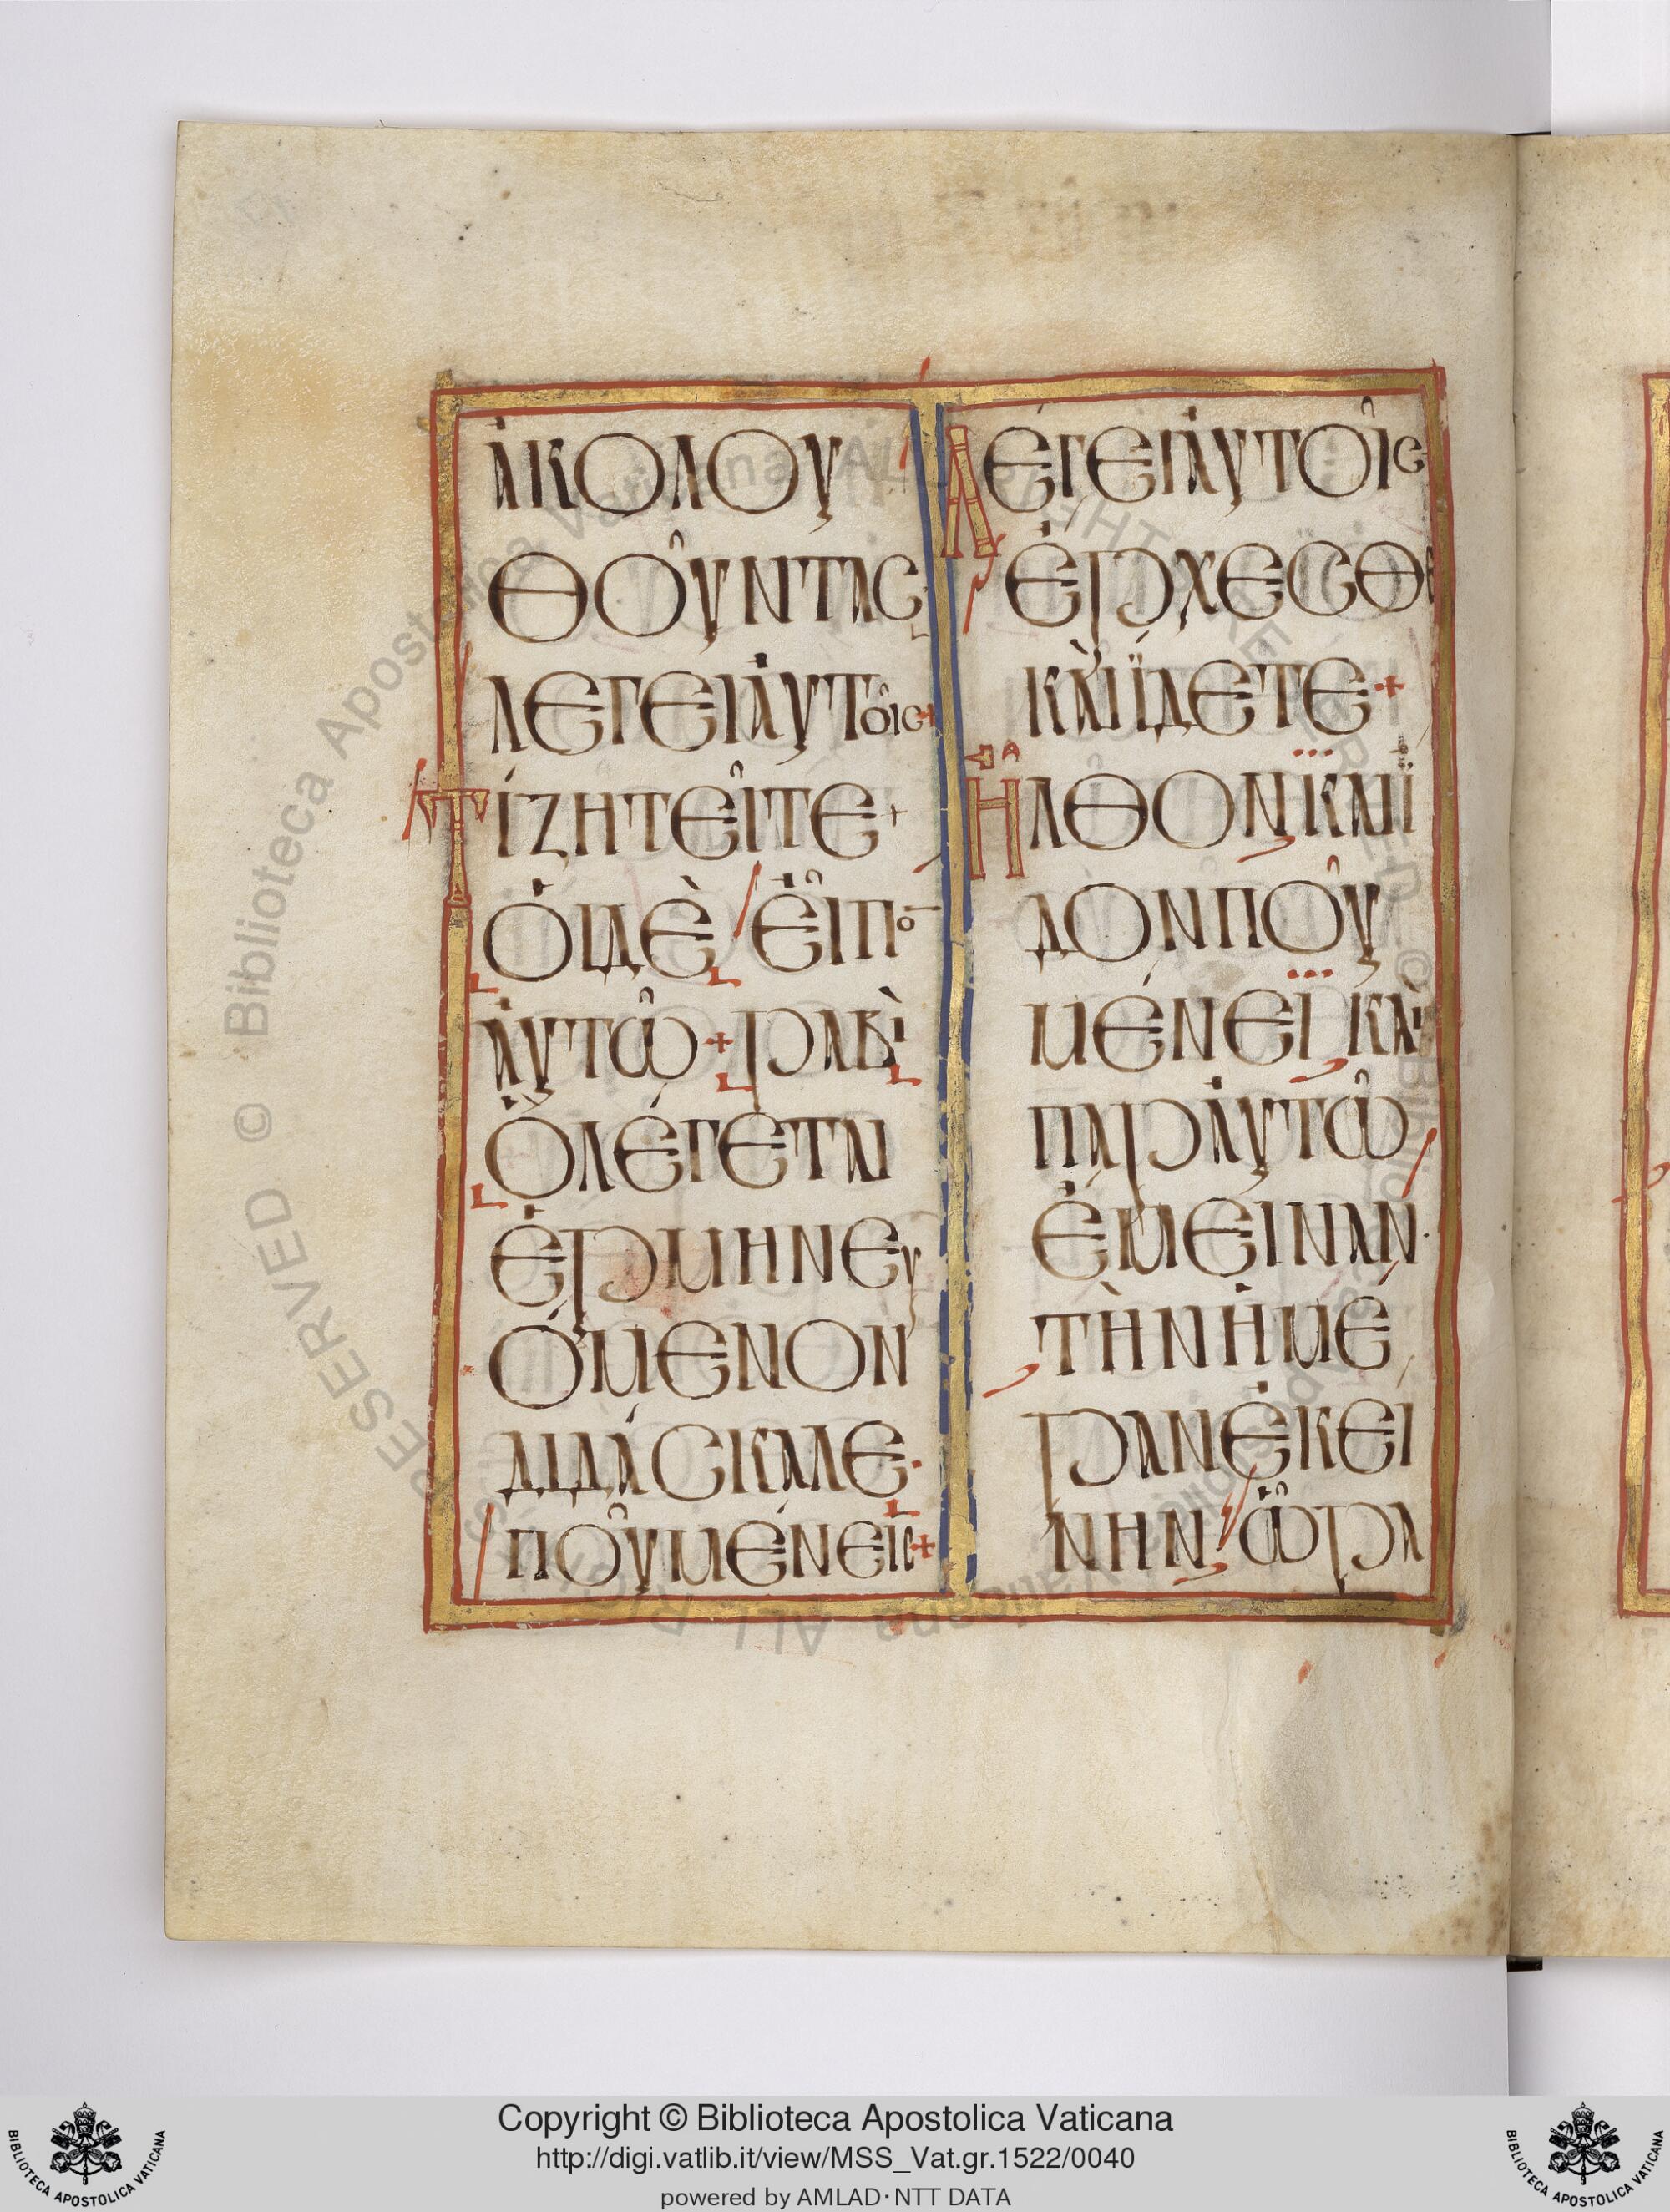 ἀκολου
θοῦντας
λεγει ἀυτοῖς +
Τί ζητεῖτε +
Ὁι δὲ εἶπο̄
ἀυτῶ + ραβὶ
ὃ λέγεται
ἑρμηνευ
όμενον
διδάσκαλε ·
ποῦ μένεις +
Λέγει ἀυτοῖς
ἔρχεσθε
κὰι ΐδετε +
Ἦλθον και ΐ
δον ποῦ
μένει κὰι
παρ ἀυτῶ
ἔμειναν ·
τὴν ἡμέ
ραν ἐκεί
νην ὥρα
Copyright © Biblioteca Apostolica Vaticana
http://digi.vatlib.it/view/MSS_Vat.gr.1522/0040
powered by AMLAD·NTT DATA
BIBLIOTECA APOSTOLICA VATICANA
BIBLIOTECA APOSTOLICA VATICANA
© Biblioteca Apostolica Vaticana ALL RIGHTS RESERVED
© Biblioteca Apostolica Vaticana ALL RIGHTS RESERVED